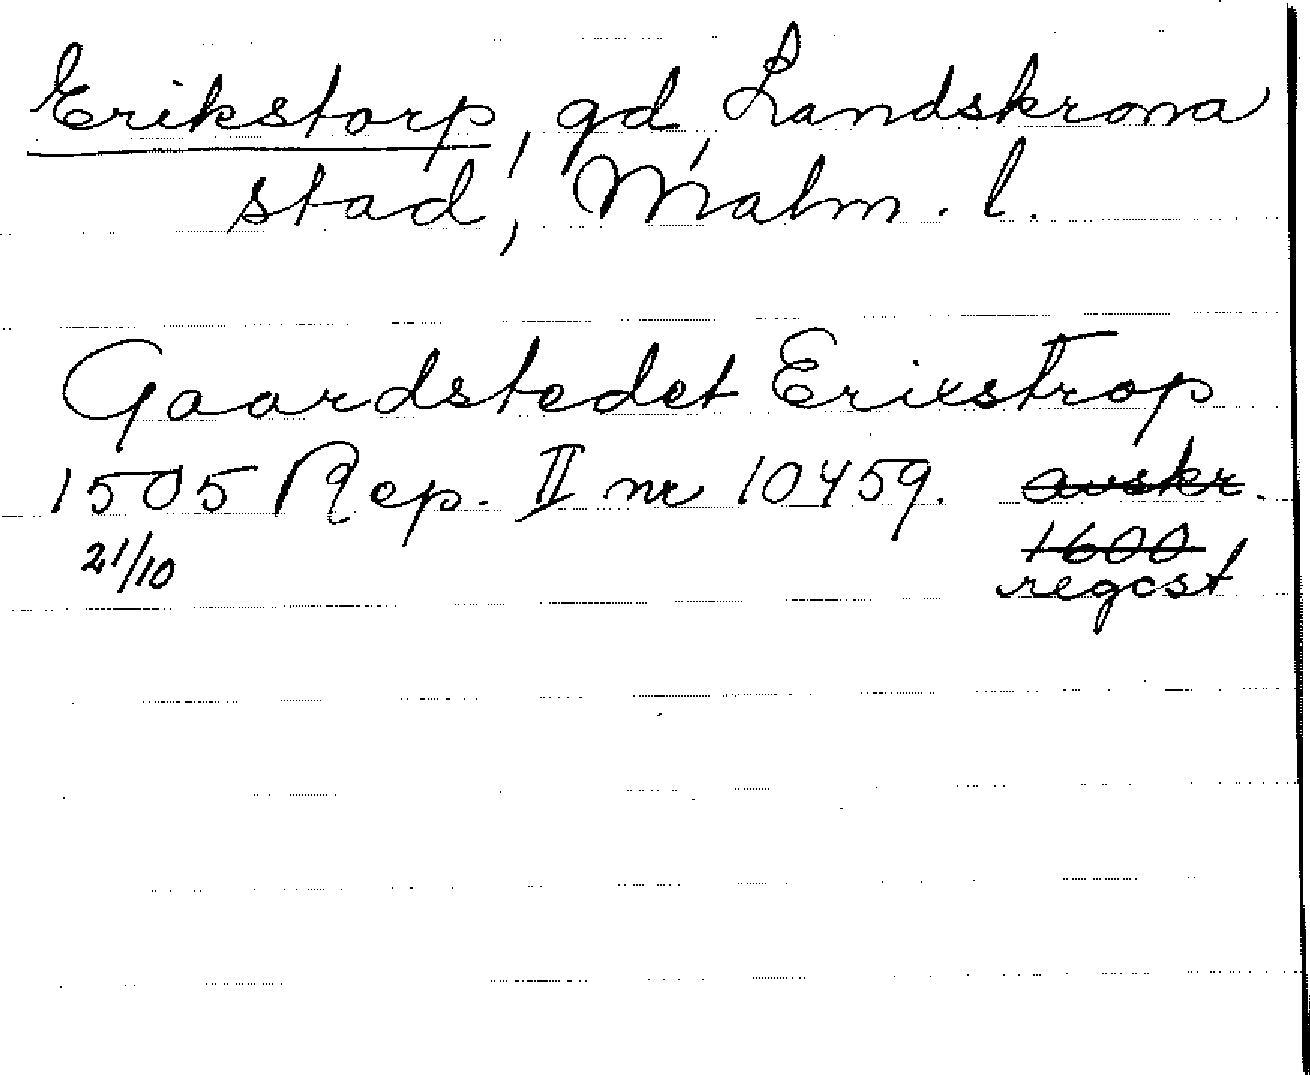 Erikstorp, gd, Landskrona
stad, Malm. l.
Gaardstedet Erixstrop
1505 Rep. II nr 10459. avskr.
21/10 1600
regest